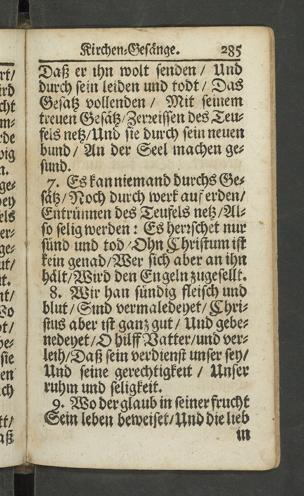 Kirchen-Gesänge. 285
Daß er ihn wolt senden / Und
durch sein leiden und todt / Das
Gesatz vollenden / Mit seinem
treuen Gesätz / Zerreissen des Teu-
fels netz / Und sie durch sein neuen
bund / An der Seel machen ge-
sund.
7. Es kan niemand durchs Ge-
sätz / Noch durch werk auf erden /
Entrünnen des Teufels netz / Al-
so selig werden : Es herrschet nur
sünd und tod / Ohn Christum ist
kein genad / Wer sich aber an ihn
hält / Wird den Engeln zugesellt.
8. Wir han sündig fleisch und
blut / Sind vermaledeyet / Chri-
stus aber ist ganz gut / Und gebe-
nedeyet / O hilff Vatter / und ver-
leih / Daß sein verdienst unser sey /
Und seine gerechtigkeit / Unser
ruhm und seligkeit.
9. Wo der glaub in seiner frucht
Sein leben beweiset / Und die lieb
in